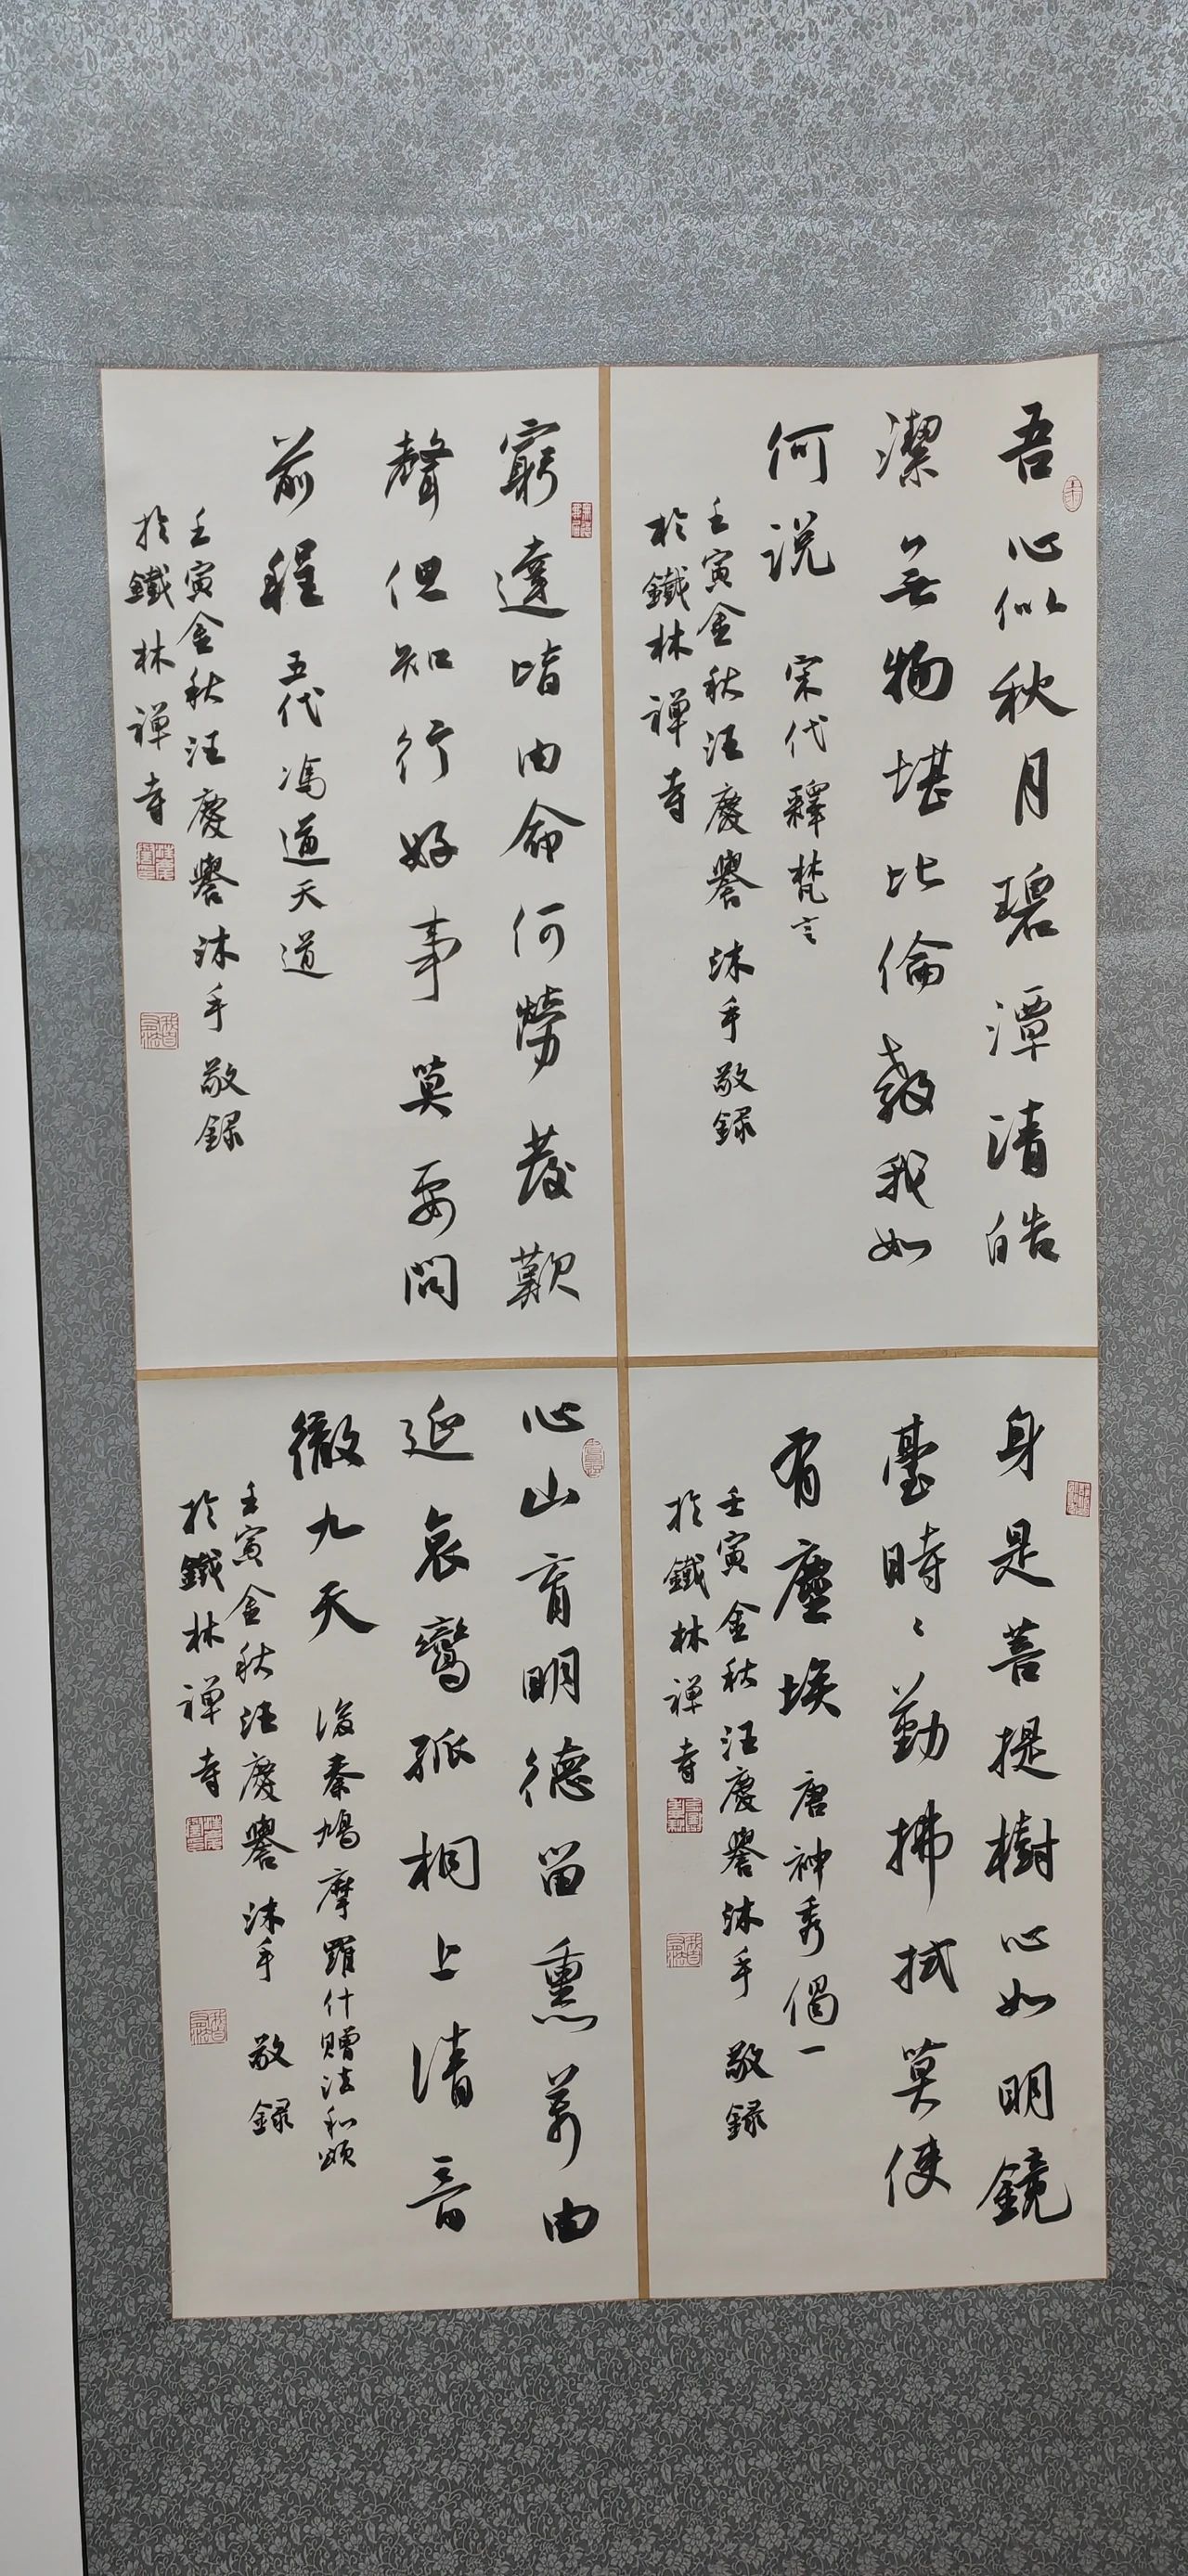 吾心似秋月碧潭清皓
潔無物堪比倫教我如
何説 宋代釋梵言
壬寅金秋汪慶譽沐手敬録
於鐵林禅寺
窮達皆由命何勞發歎
聲但知行好事莫要問
前程 五代馮道天道
壬寅金秋汪慶譽沐手敬録
於鐵林禅寺
身是菩提樹心如明鏡
臺時〻勤拂拭莫使
有塵埃 唐神秀偈一
壬寅金秋汪慶譽沐手敬録
於鐵林禅寺
心山育明德留熏萬由
延哀鸞孤桐上清音
徹九天 後秦鳩摩羅什贈法和頌
壬寅金秋汪慶譽沐手敬録
於鐵林禅寺